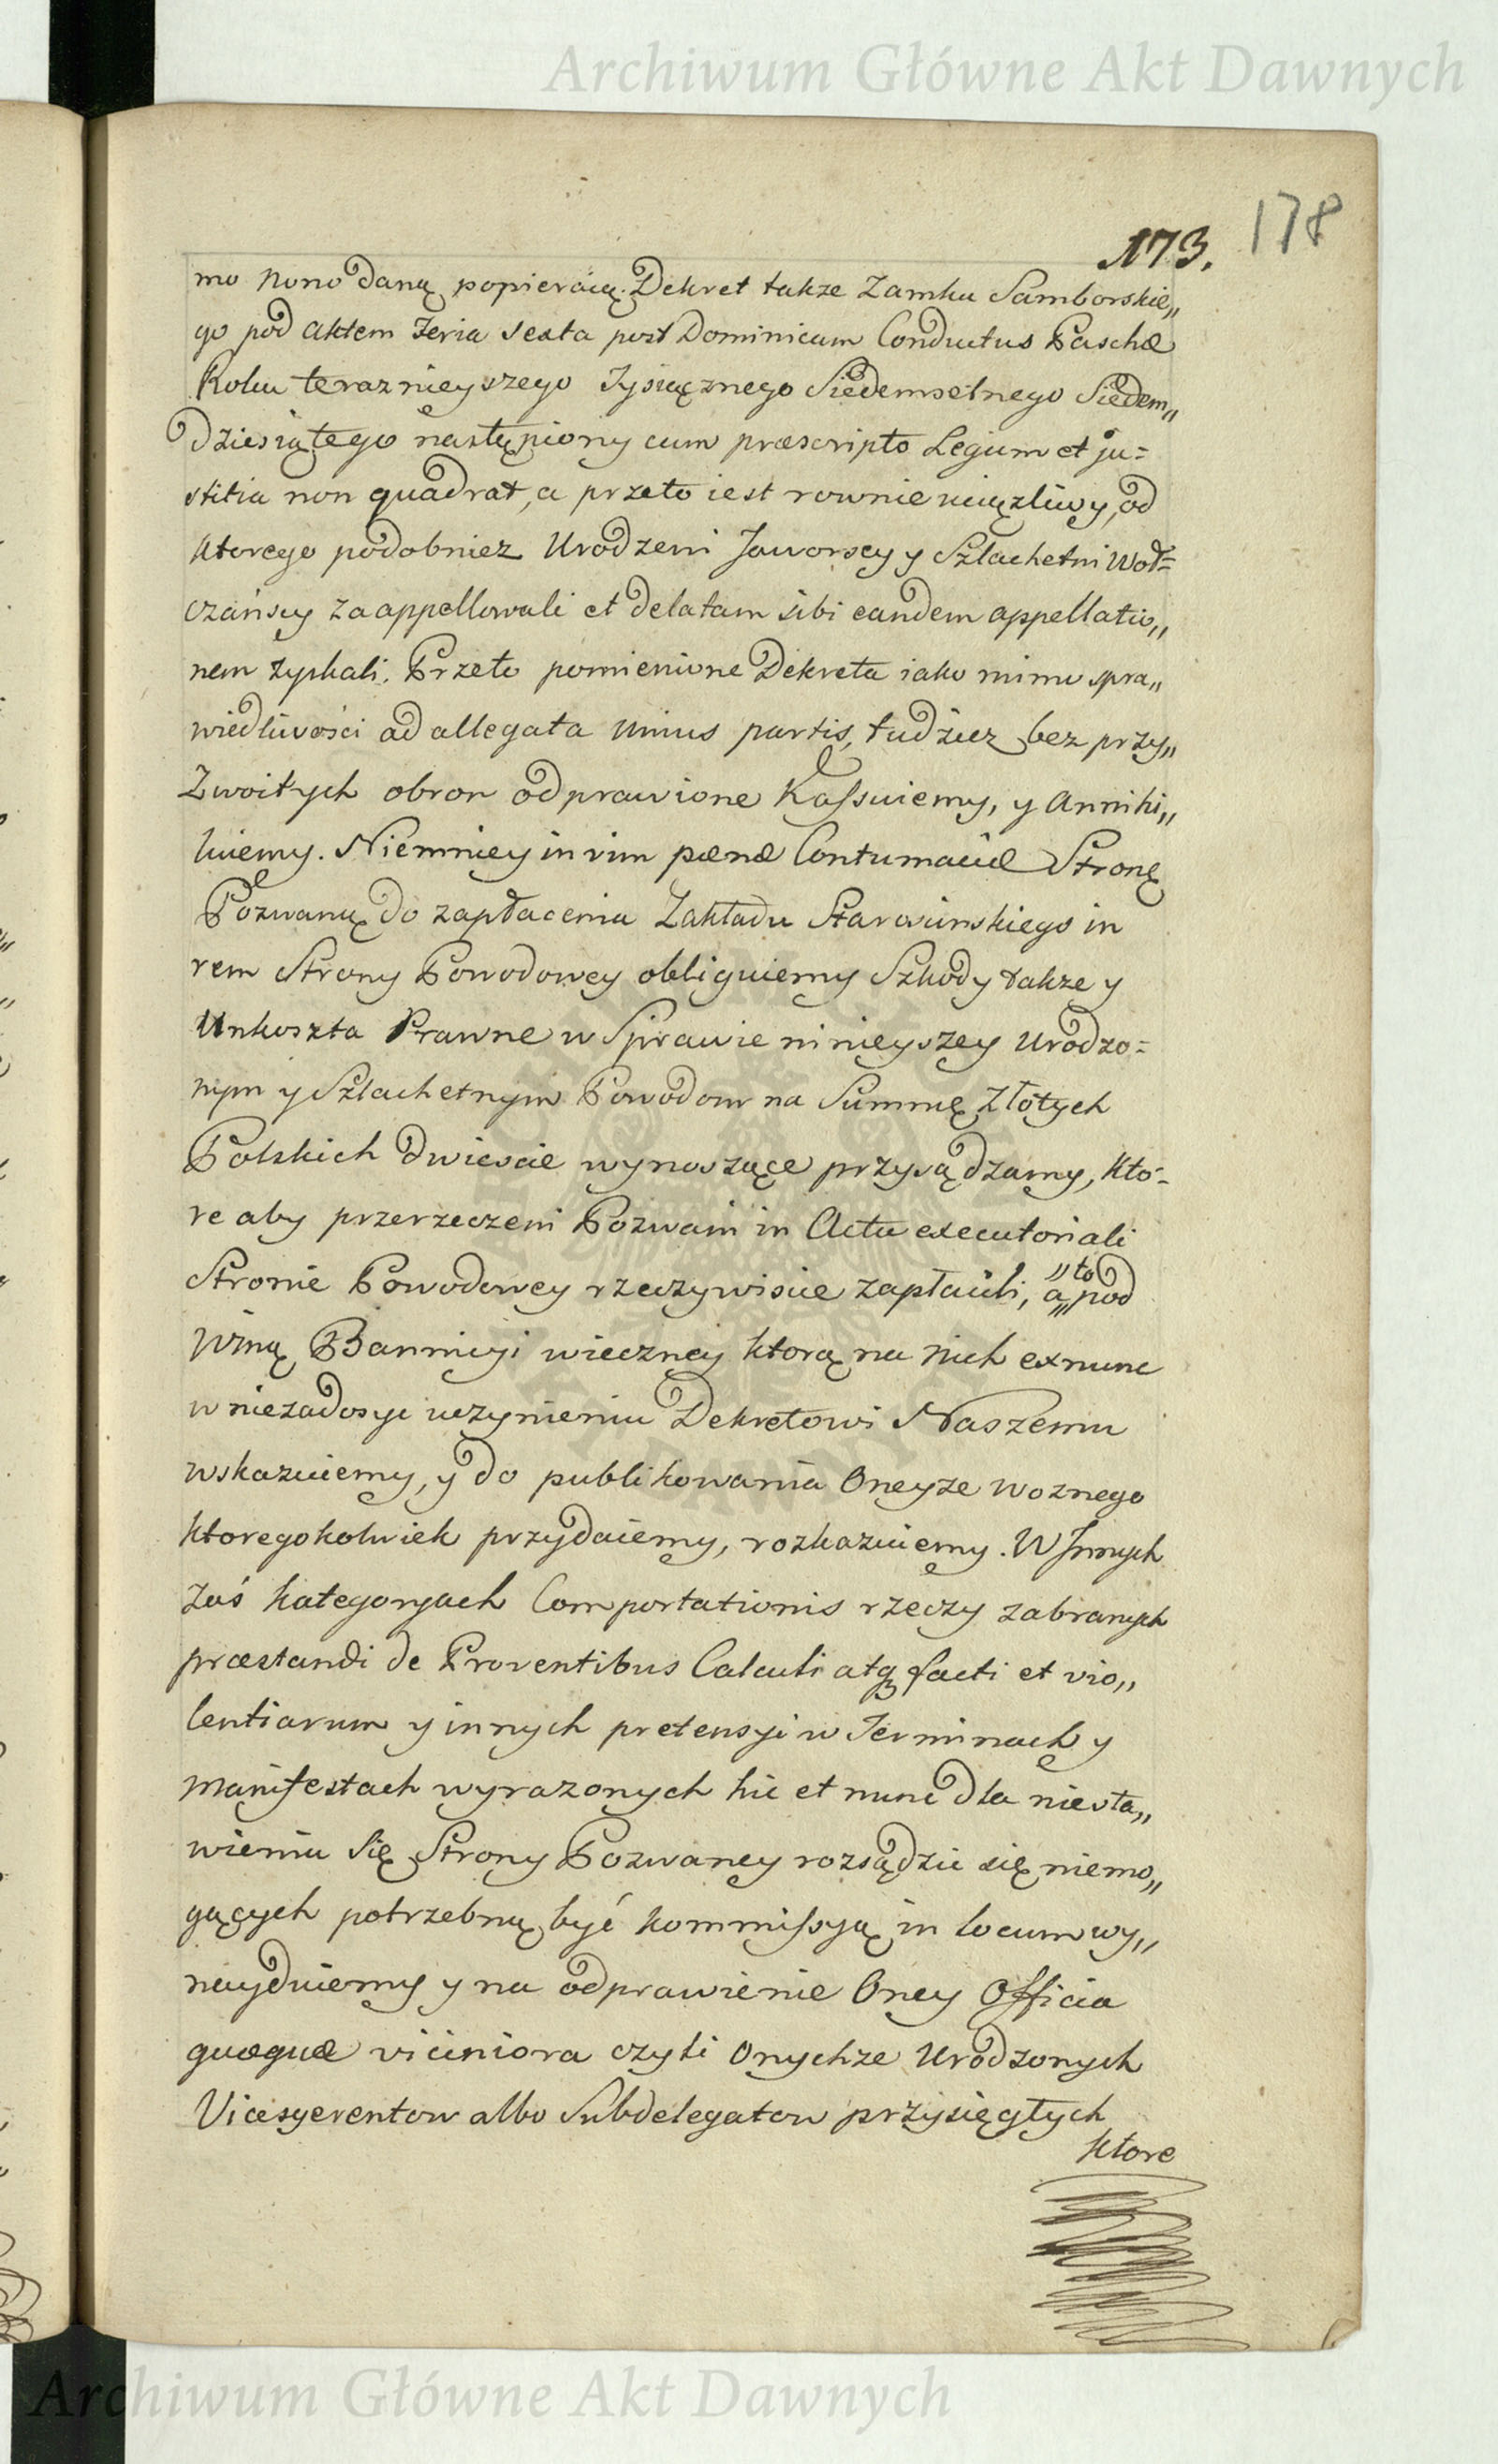 Archiwum Główne Akt Dawnych
173. 178
mo Nono daną popieraią. Dekret takze Zamku Samborskie„
go pod aktem Feria Sexta post Dominicam Conductus Paschæ
Roku teraznieyszego Tysiącznego Siedemsetnego Siedem„
dziesiątego nastąpiony cum præscripto Legum et ju=
stitia non quadrat, a przeto iest rownie uciązliwy, od
ktorego podobniez Urodzeni Jaworscy y Szlachetni Woł=
czańscy zaappellowali et delatam sibi eandem appellatio„
nem zyskali. Przeto pomienione Dekreta iako mimo spra„
wiedliwości ad allegata unius partis, tudziez bez przy„
zwoitych obron odprawione Kassuiemy, y Annihi„
luiemy. Niemniey in vim pænæ Contumaciæ Stronę
Pozwaną do zapłacenia Zakładu Starościnskiego in
rem Strony Powodowey obliguiemy Szkody takze y
Unkoszta Prawne w Sprawie ninieyszey Urodzo=
nym y Szlachetnym Powodom na Summę Złotych
Polskich dwiescie wynoszące przysądzamy, kto-
re aby przerzeczeni Pozwani in Actu executoriali
Stronie Powodowey rzeczywiscie zapłacili, a „to pod
Winą Bannicyi wieczney ktorą na nich exnunc
w niezadosyc uczynieniu Dekretowi Naszemu
wskazuiemy, y do publikowania Oneyze Woznego
ktoregokolwiek przydaiemy, rozkazuiemy. W Innych
zaś kategoryach Comportationis rzeczy zabranych
præstandi de Proventibus Calculi atq facti et vio„
lentiarum y innych pretensyi w Terminach y
Manifestach wyrazonych hic et nunc dla niesta„
wieniu się Strony Pozwaney rozsądzić się niemo„
gących potrzebną być kommissyą in locum wy„
nayduiemy y na odprawienie Oney Officia
quæquæ viciniora czyli Onychze Urodzonych
Vicesgerentow albo Subdelegatow przysięgłych
ktore
Archiwum Główne Akt Dawnych